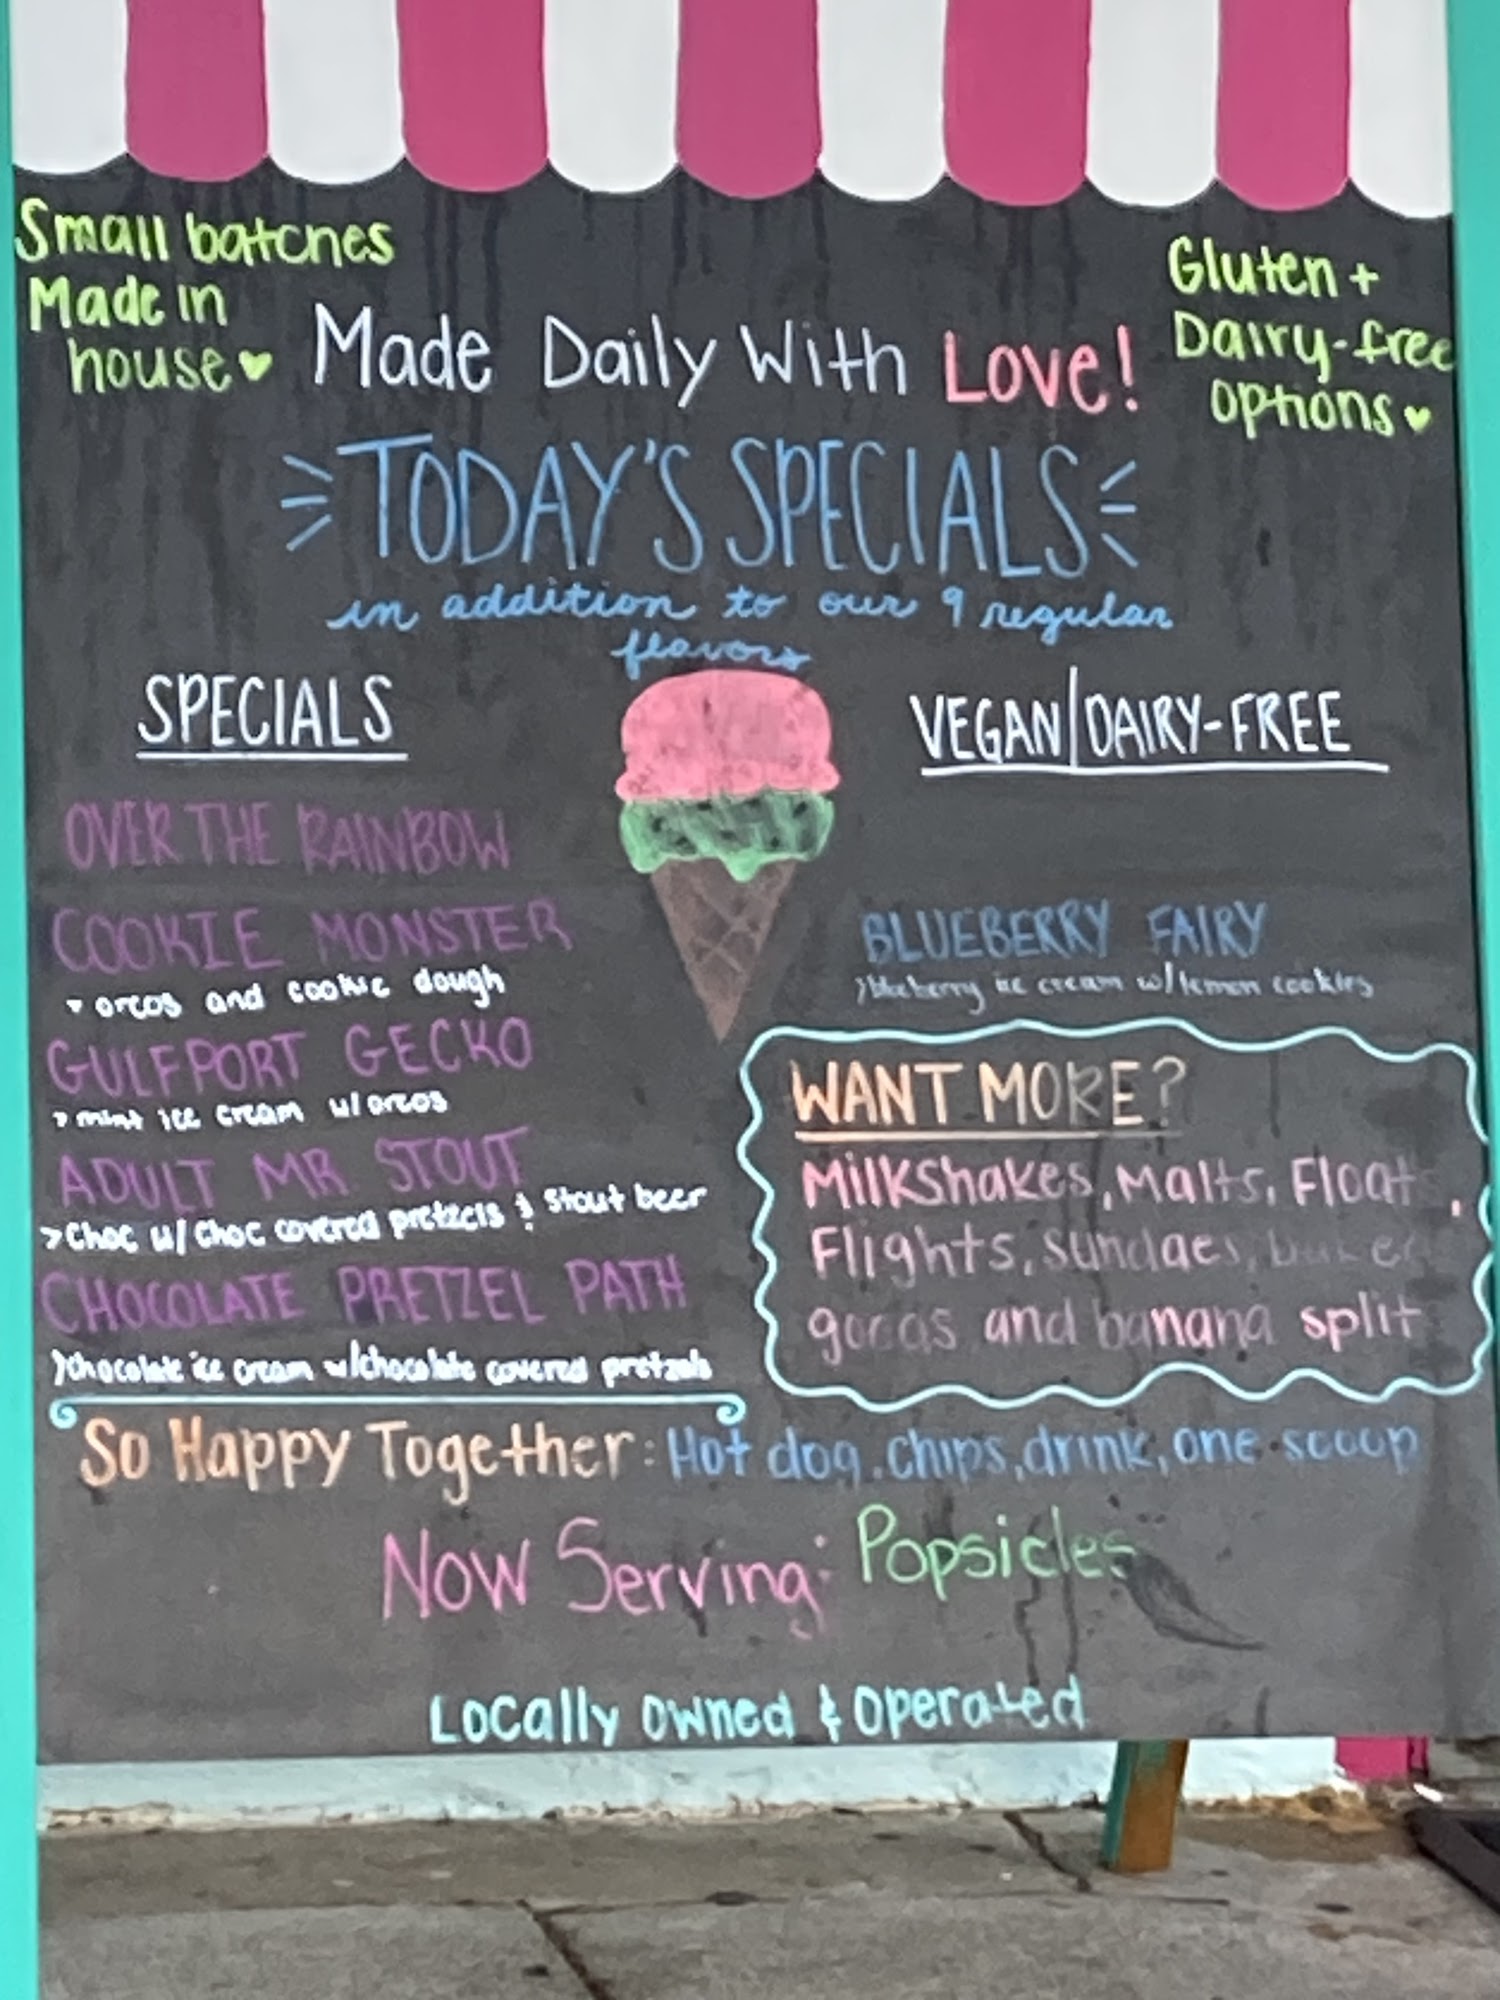 Small batches
Made in
house
Made Daily With Love!
Gluten +
Dairy-free
options
TODAY'S SPECIALS
in addition to our 9 regular
flavors
SPECIALS
OVER THE RAINBOW
COOKIE MONSTER
> oreos and cookie dough
GULFPORT GECKO
> mint ice cream w/oreos
ADULT MR. STOUT
> Choc w/ choc covered pretzels & stout beer
CHOCOLATE PRETZEL PATH
>chocolate ice cream w/chocolate covered pretzels
VEGAN/DAIRY-FREE
BLUEBERRY FAIRY
>blueberry ice cream w/lemon cookies
WANT MORE?
Milkshakes, Malts, Float,
Flights, sundaes, baked
goods and banana split
So Happy Together: Hot dog, chips, drink, one scoop
Now Serving: Popsicles
Locally owned & operated